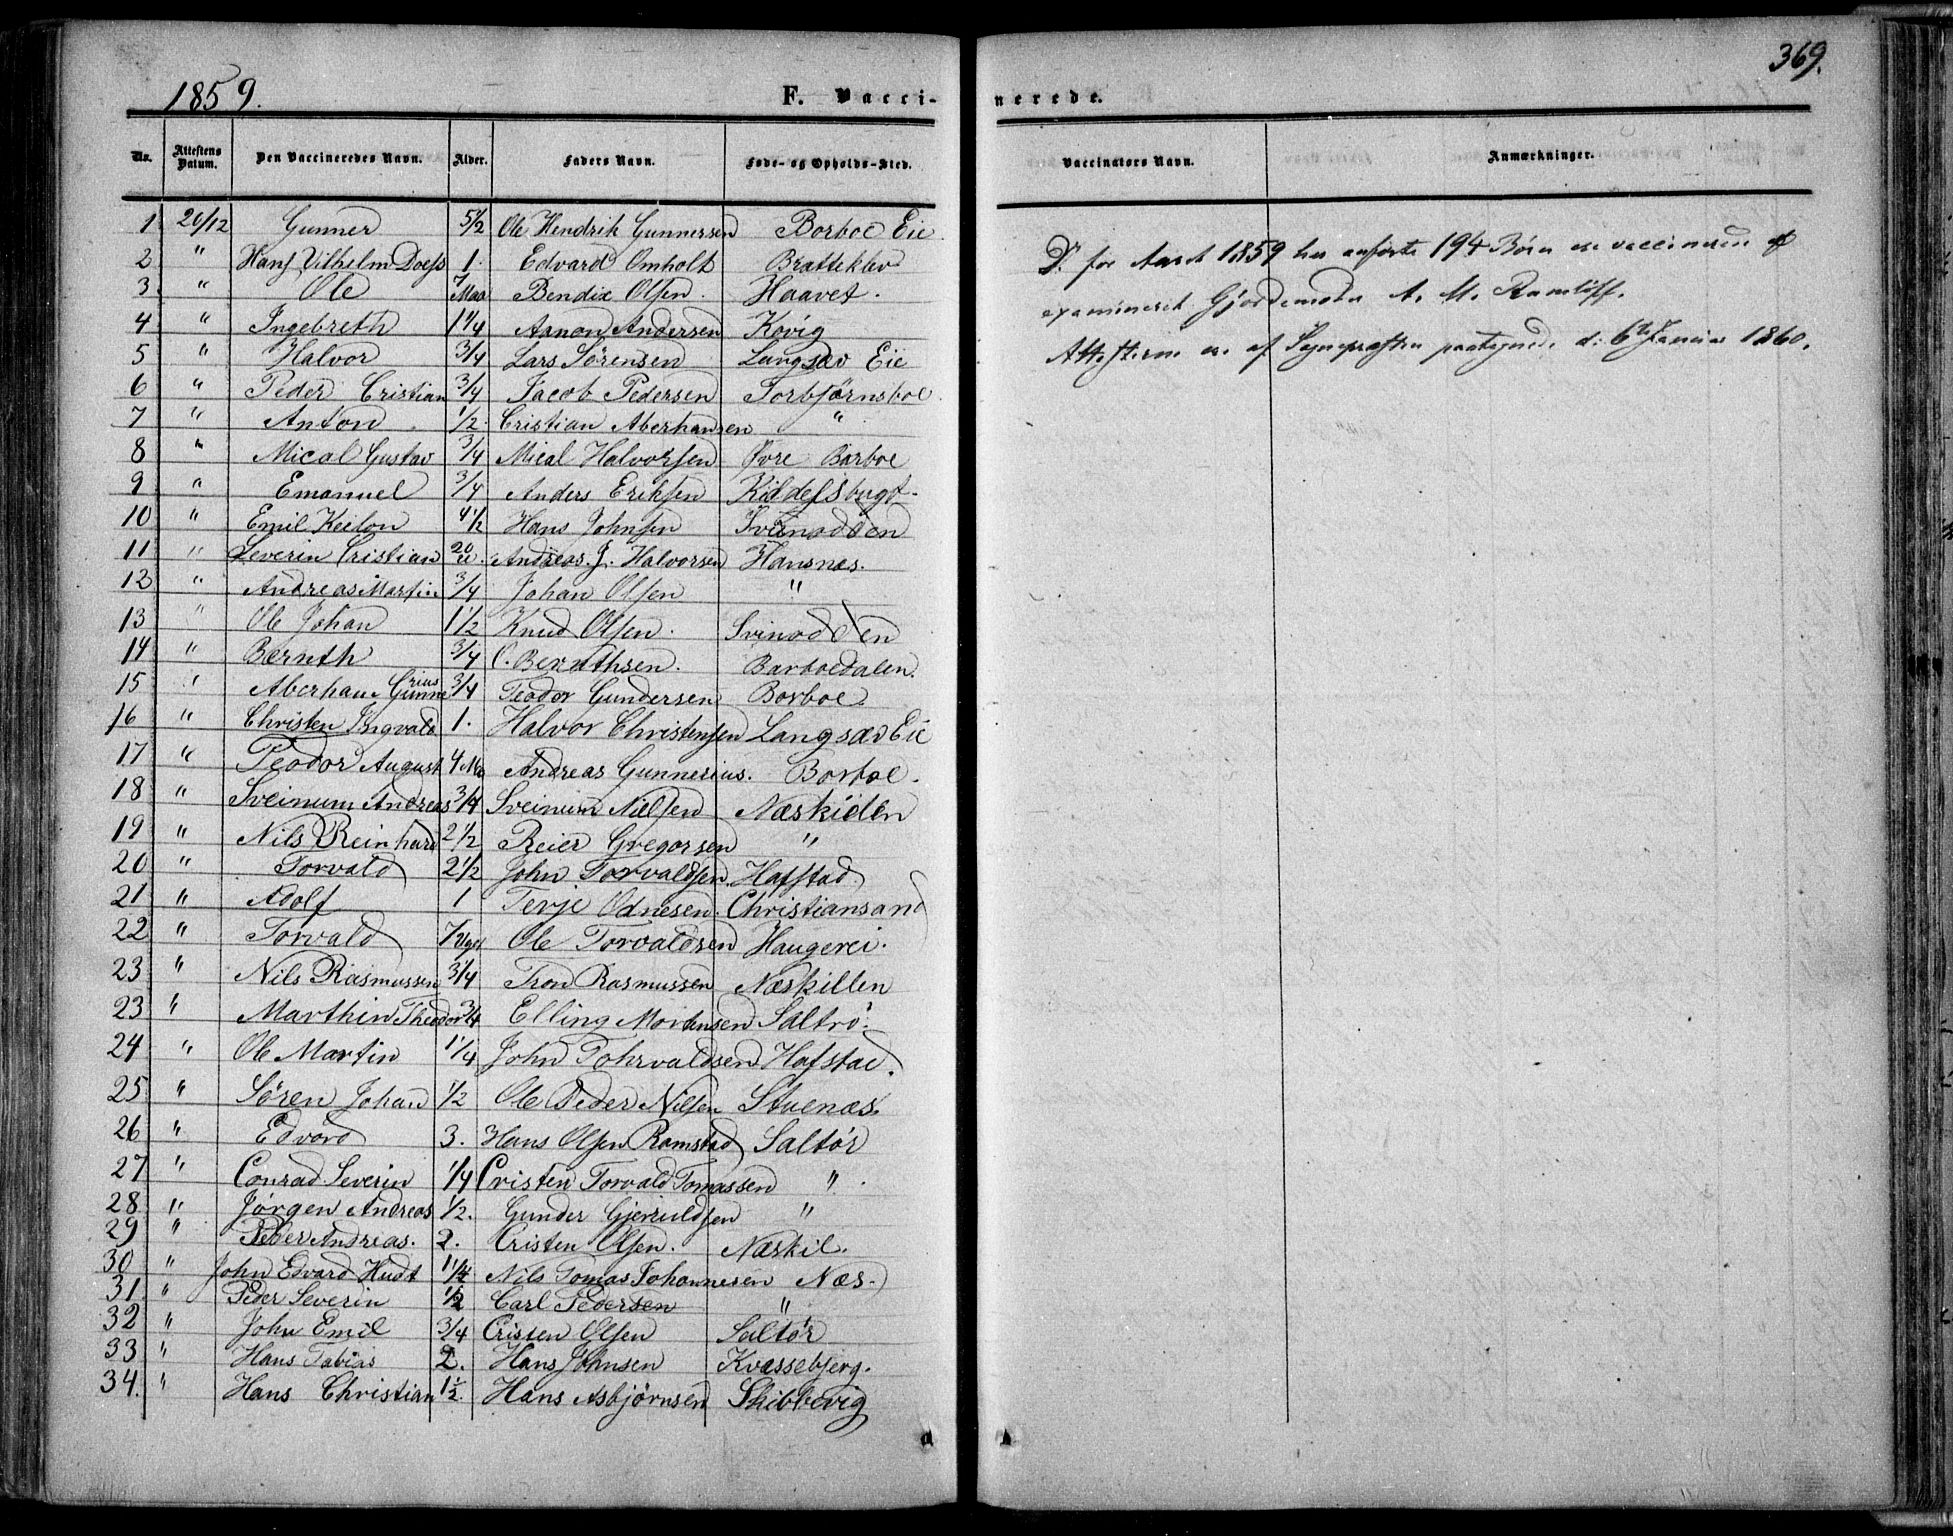 369.
1859. F. Vacci- nerede.
Nr. Attestens Datum. Den Vaccineredes Navn. Alder. Faders Navn. Føde- og Opholds-Sted. Vaccinators Navn. Anmærkninger.
1 20/12 Gunner 5 1/2 Ole Hendrik Gunnersen Borboe Eie
2 " Hans Vilhelm 1. Edvard Omholt Bratteklev
3. " Ole 7 Maa Bendix Olsen. Haavet.
4 " Ingebreth 1 1/4 Aanon Andersen Kovig
5 " Halvor 3/4 Lars Sørensen Langsæv Eie
6 " Peder Cristian 3/4 Jacob Pedersen Torbjørnsboe
7 " Anton 1/2 Cristian Aberhansen "
8 " Mical Gustav 3/4 Mical Halvorsen Øvre Barboe
9 " Emanuel 3/4 Anders Eriksen Kiddelsbugt.
10 " Emil Keilon 4 1/2 Hans Johnsen Svinodden
11 " Severin Cristian Andreas. J. Halvorsen Hansnæs.
12 " Andreas Martin 3/4 Johan Olsen "
13 " Ole Johan 1 1/2 Knud Olsen. Svinodden
14 " Bernth 3/4 O. Bernthsen. Barboedalen.
15 " Aberhan Gunnerius 3/4 Teodor Gundersen Borboe
16 " Christen Ingvald 1. Halvor Christensen Langsæv Eie
17 " Teodor August 4 Ma Andreas Gunnerius. Borboe.
18 " Sveinum Andreas 3/4 Sveinum Nielsen Næskiden
19 " Nils Reinhard 2 1/2 Reier Gregorsen "
20 " Torvald 2 1/2 John Torvaldsen Hafstad
21 " Adolf 1 Terje Odnesen. Christiansand
22 " Torvald 7 Uger Ole Torvaldsen Haugerei.
23 " Nils Rasmussen 3/4 Tron Rasmussen Næskillen
23 " Marthin Theodor 3/4 Elling Mortensen Saltrö.
24 " Ole Martin 1 1/4 John Tohrvaldsen Hafstad.
25 " Sören Johan 1/2 Ole Peder Nilsen Stuenæs.
26 " Edvard 3. Hans Olsen Ramstad Saltör
27 " Conrad Severin 1/4 Cristen Torvald Tomassen "
28 " Jørgen Andreas 1/2. Gunder Gjeruldsen "
29 " Peder Andreas. 2. Cristen Olsen. Næskil.
30 " John Edvard Hudt 1 1/4 Nils Tomas Johannesen Næs.
31. " Peder Severin 1/2 Carl Pedersen "
32 " John Emil 3/4 Cristen Olsen Saltör
33 " Hans Tobias 2. Hans Johnsen Kvassebjerg.
34. " Hans Christian 1 1/2. Hans Asbjørnsen Skibbevig
De for Aaret 1859 her anførte 194 Børn ere vaccinerede af
examineret Gjordemoder A. M. Ramløff.
Attesterne ere af Sognepræsten paategnede d: 6te Januar 1860.